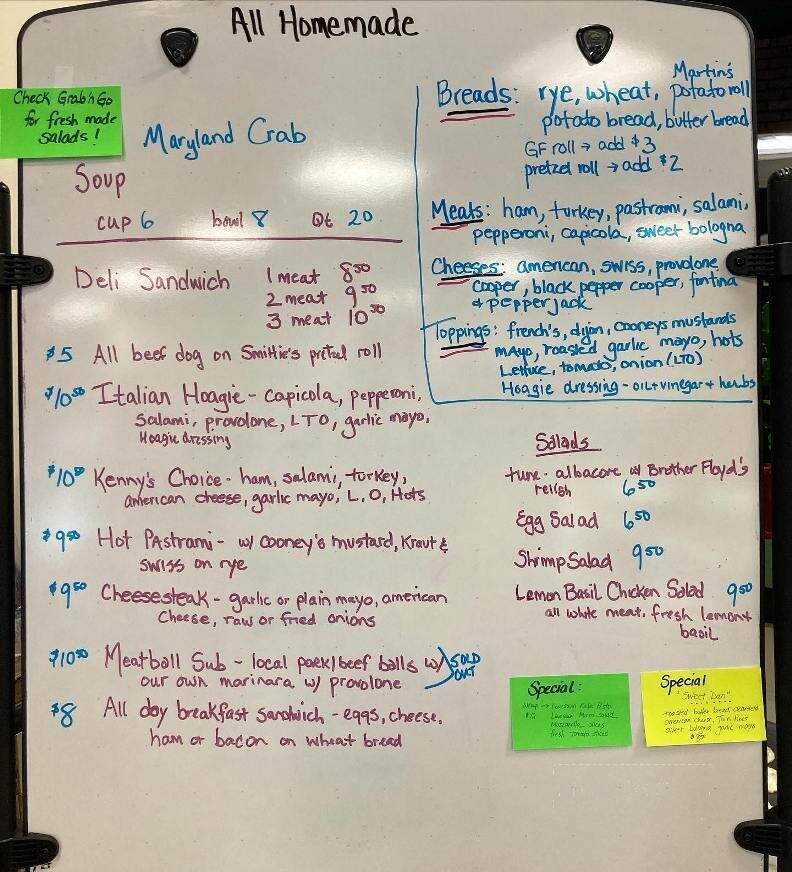 All Homemade
Check Grab'n Go
for fresh made
salads!
Maryland Crab
Soup
cup 6 bowl 8 Qt 20
Deli Sandwich 1 meat 8.50
2 meat 9.50
3 meat 10.50
$5 All beef dog on Smittie's pretzel roll
$10.50 Italian Hoagie - capicola, pepperoni,
salami, provolone, LTO, garlic mayo,
Hoagie dressing
$10.50 Kenny's Choice - ham, salami, turkey,
american cheese, garlic mayo, L, O, Hots
$9.50 Hot Pastrami - w/ Cooney's mustard, Kraut &
swiss on rye
$9.50 Cheesesteak - garlic or plain mayo, american
cheese, raw or fried onions
$10.50 Meatball Sub - local pork/beef balls w/ SOLD
our own marinara w/ provolone OUT
$8 All day breakfast sandwich - eggs, cheese,
ham or bacon on wheat bread
Martin's
Breads: rye, wheat, potato roll
potato bread, butter bread
GF roll → add $3
pretzel roll → add $2
Meats: ham, turkey, pastrami, salami,
pepperoni, capicola, sweet bologna
Cheeses: american, swiss, provolone
cooper, black pepper cooper, fontina
& pepperjack
Toppings: french's, dijon, cooneys mustards
mayo, roasted garlic mayo, hots
Lettuce, tomato, onion (LTO)
Hoagie dressing - oil + vinegar + herbs
Salads
tuna - albacore w/ Brother Floyd's
relish 6.50
Egg Salad 6.50
Shrimp Salad 9.50
Lemon Basil Chicken Salad 9.50
all white meat, fresh lemon +
basil
Special:
mozzarella slices
fresh tomato slices
Special
"Sweet Dan"
toasted butter bread,
american cheese,
sweet bologna, garlic mayo